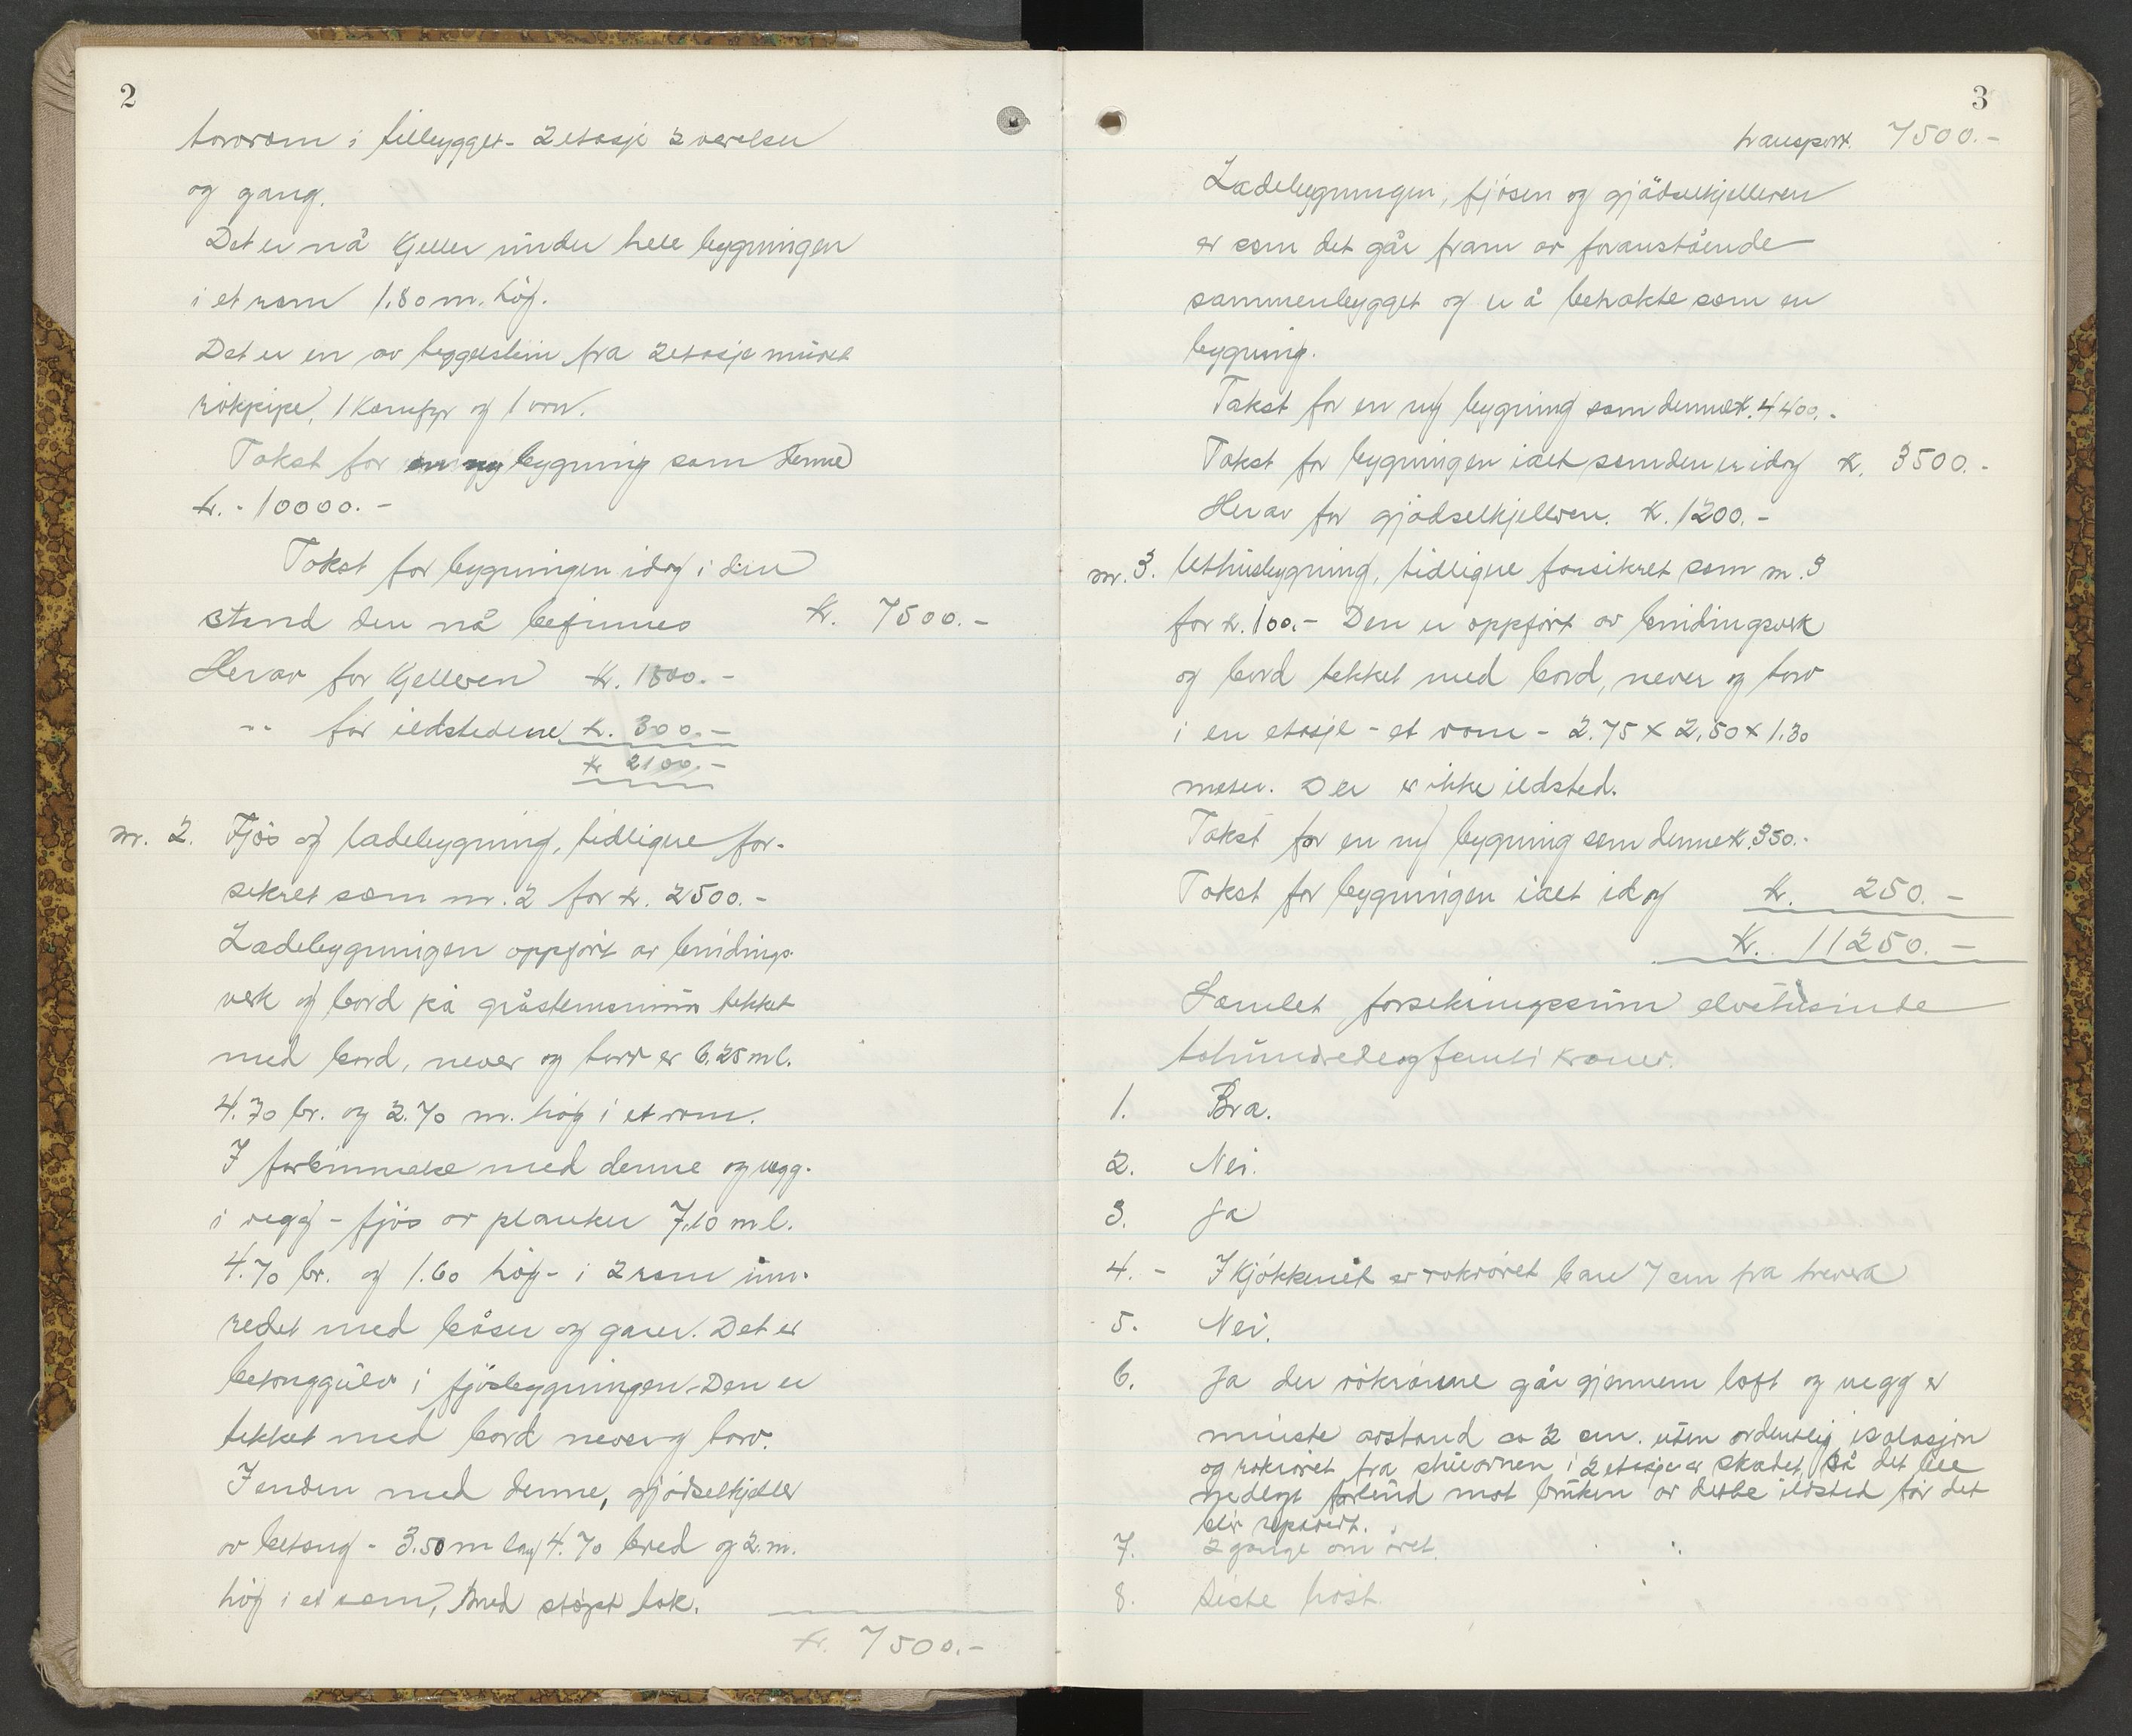 2
torvrom i tilbygget - 2 etasje 2 værelser
og gang.
Det er nå Kjeller under hele bygningen
i et rom 1.80 m. høg.
Det er en av teggelstein fra 2 etasje muret
rökpipe, 1 Komfyr og 1 ovn.
Takst for en ny bygning som denne
kr. - 10000. -
Takst for bygningen idag i den
stand den nå befinnes kr. 7500. -
Herav for Kjelleren kr. 1800. -
" for ildstedene kr. 300. -
kr 2100. -
nr. 2. Fjös og ladebygning, tidligere for-
sikret som nr. 2 for kr. 2500. -
Ladebygningen oppfört av bindings-
verk og bord på gråstensmur tekket
med bord, never og torv er 6.25 m l.
4.70 br. og 2.70 m. høg i et rom.
I forbinnelse med denne og vegg-
i vegg - fjös av planker 7.10 m l.
4.70 br. og 1.60 høg - i 2 rom inn-
redet med båser og garer. Det er
betonggulv i fjösbygningen. Den er
tekket med bord never og torv.
I enden med denne, gjödselkjeller
av betong - 3.50 m lang 4.70 bred og 2. m.
høg i et rom, med støpt lok.
kr. 7500. -
3
transport. 7500. -
Ladebygningen, fjösen og gjödselkjelleren
er som det går fram av foranstående
sammenbygget og er å betrakte som en
bygning.
Takst for en ny bygning som denne kr. 4400. -
Takst for bygningen ialt som den er idag kr. 3500. -
Herav for gjödselkjelleren. kr. 1200. -
nr. 3. Uthusbygning, tidligere forsikret som nr. 3
for kr. 100. - Den er oppfört av bindingsverk
og bord tekket med bord, never og torv
i en etasje - et rom - 2.75 x 2.50 x 1.30
meter. Der er ikke ildsted.
Takst for en ny bygning som denne kr. 350. -
Takst for bygningen ialt idag kr. 250. -
kr. 11250. -
Samlet forsekringssum elvetusinde
tohundredeogfemti kroner.
1. Bra.
2. Nei.
3. Ja
4. - I Kjökkenet er rökröret bare 7 cm fra treverk
5. Nei.
6. Ja der rökrörene går gjennem loft og vegg er
minste avstand ca 2 cm. uten ordentlig isolasjon
og rökröret fra stueovnen i 2 etasje er skadet, så det ble
nedlagt forbud mot bruken av dette ildsted för det
blir reparert.
7. 2 gange om året.
8. Siste höst.